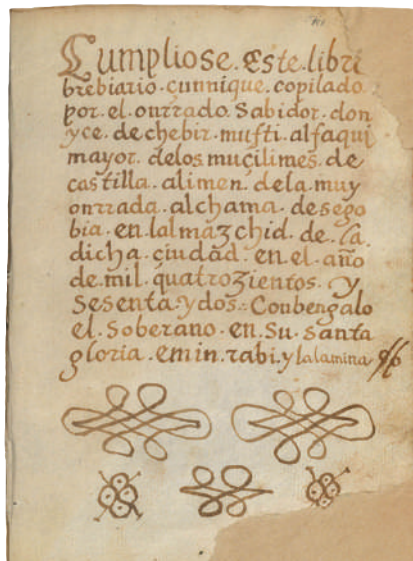 Cumpliose. Este. libre
brebiario. çunnique. copilado.
por. el. onrrado. Sabidor. don
yce. de chebir. mufti. alfaqui
mayor. delos. muçilimes. de
castilla. alimen. dela. muy
onrrada. alchama. de sego
bia. en lalmazchid. de. la.
dicha. çiudad. en el. año
de. mil. quatrozientos. y
Sesenta. y dos. Conbengalo
el. Soberano. en. Su. Santa
gloria. emin. rabi. y lalamina